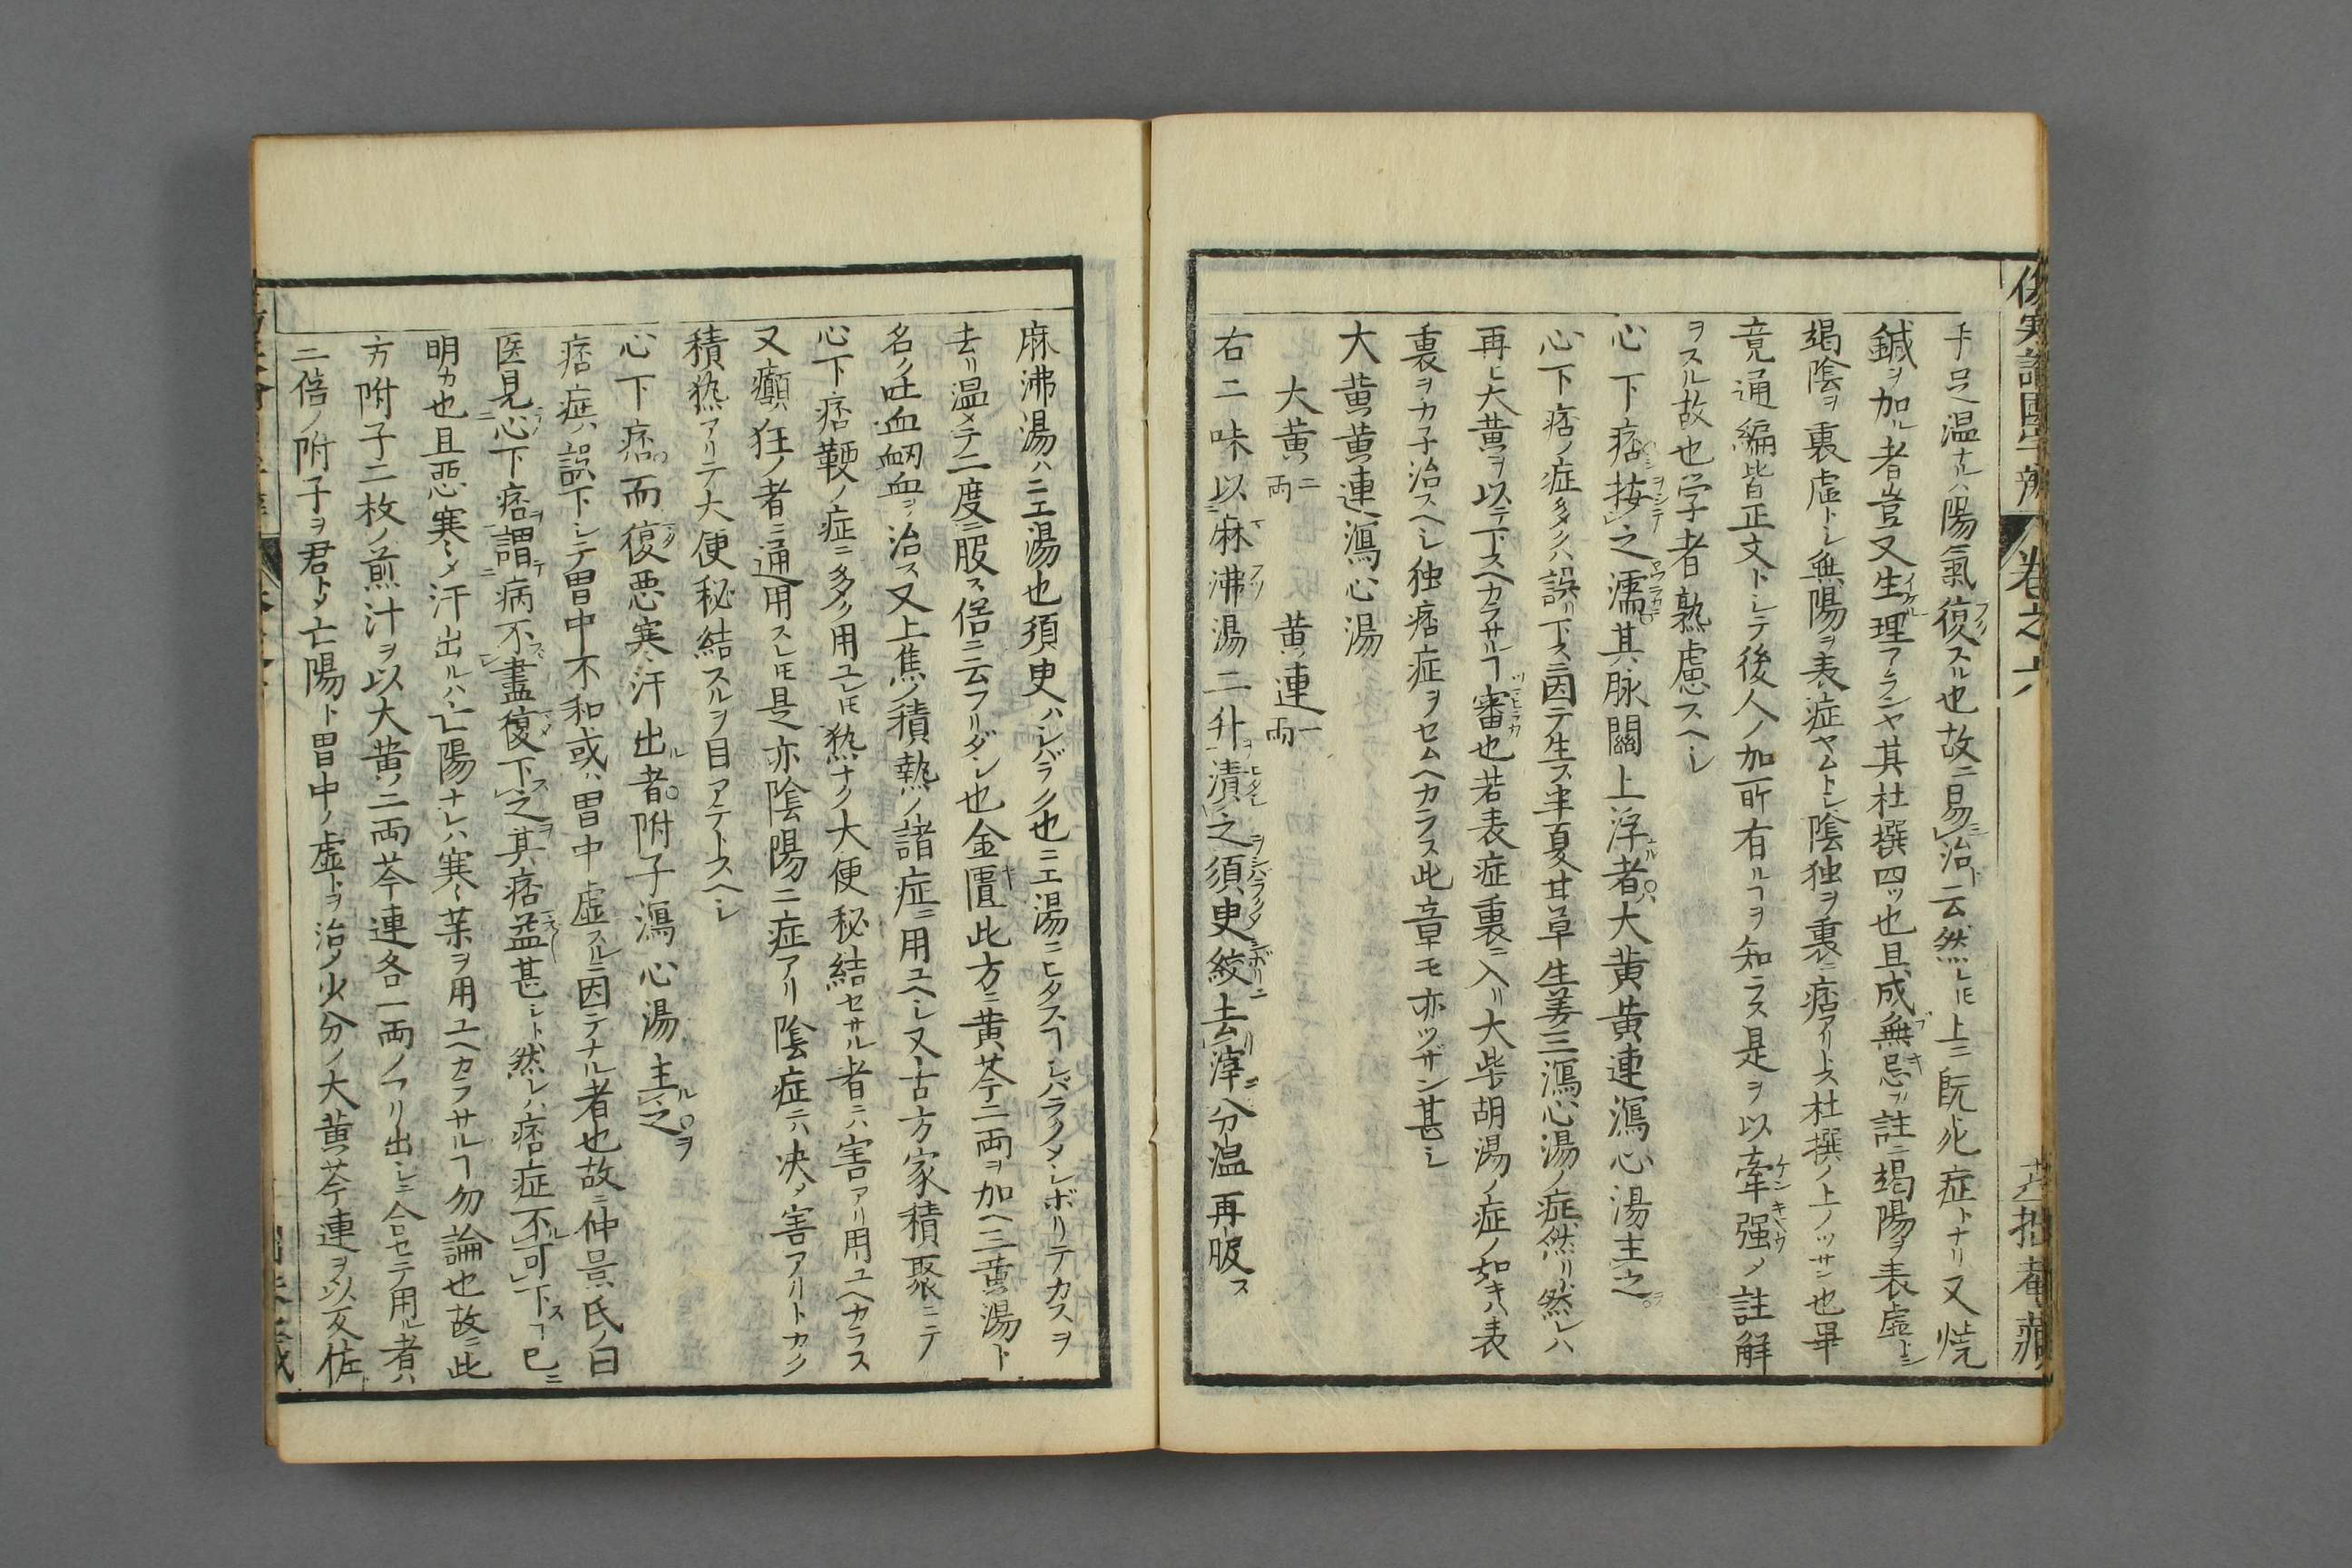 傷寒論國字解 卷之六
手足温ナルハ陽氣復スル也故ニ易治ト云然レ𪜈上ニ既ニ死症トナリ又焼
鍼ヲ加ル者豈又生理アランヤ其杜撰四ツ也且成無忌カ註ニ竭陽ヲ表虚トシ
竭陰ヲ裏虚トシ無陽ヲ表症ヤムトシ陰独ヲ裏ニ痞アリトス杜撰ノ上ノツサン也畢
竟通編皆正文トシテ後人ノ加ル所有ルヿヲ知ラス是ヲ以牽强ノ註解
ヲスル故也学者熟慮スヘシ
心下痞按之濡其脉關上浮者大黄黄連瀉心湯主之
心下痞ノ症多クハ誤リ下スニ因テ生ス半夏甘草生姜三瀉心湯ノ症然リ然レハ
再ヒ大黄ヲ以テ下スヘカラサルヿ審也若表症裏ニ入リ大柴胡湯ノ症ノ如キハ表
裏ヲカ子治スヘシ独痞症ヲセムヘカラス此章モ亦ツザン甚シ
大黄黄連瀉心湯
大黄二両 黄連一両
右二味以麻沸湯二升漬之須臾絞去滓分温再服ス
麻沸湯ハニエ湯也須臾ハシバラク也ニエ湯ニヒタスヿシバラクメシボリテカスヲ
去リ温メテ二度ニ服ス俗ニ云フリダシ也金匱此方ニ黄芩二両ヲ加ヘ三黄湯ト
名ク吐血衂血ヲ治ス又上焦ノ積熱ノ諸症ニ用ユヘシ又古方家積聚ニテ
心下痞鞕ノ症ニ多ク用ユレ𪜈熱ナク大便秘結セサル者ニハ害アリ用ユヘカラス
又癲狂ノ者ニ通用スレ𪜈是亦陰陽二症アリ陰症ニハ决メ害アリトカク
積熱アリテ大便秘結スルヲ目アテトスヘシ
心下痞而復悪寒汗出者附子瀉心湯主之
痞症ハ誤下シテ胃中不和或ハ胃中虚スルニ因テナル者也故ニ仲景氏ノ曰
医見心下痞謂病不盡復下之其痞益甚シト然レハ痞症不可下スヿ已ニ
明カ也且悪寒〆汗出ルハ亡陽ナレハ寒薬ヲ用ユヘカラサルヿ勿論也故ニ此
方附子二枚ノ煎汁ヲ以大黄ノ二両芩連各一両ノフリ出シニ合セテ用ル者ハ
二倍ノ附子ヲ君ト〆亡陽ト胃中ノ虚トヲ治ノ火分ノ大黄芩連ヲ以反佐